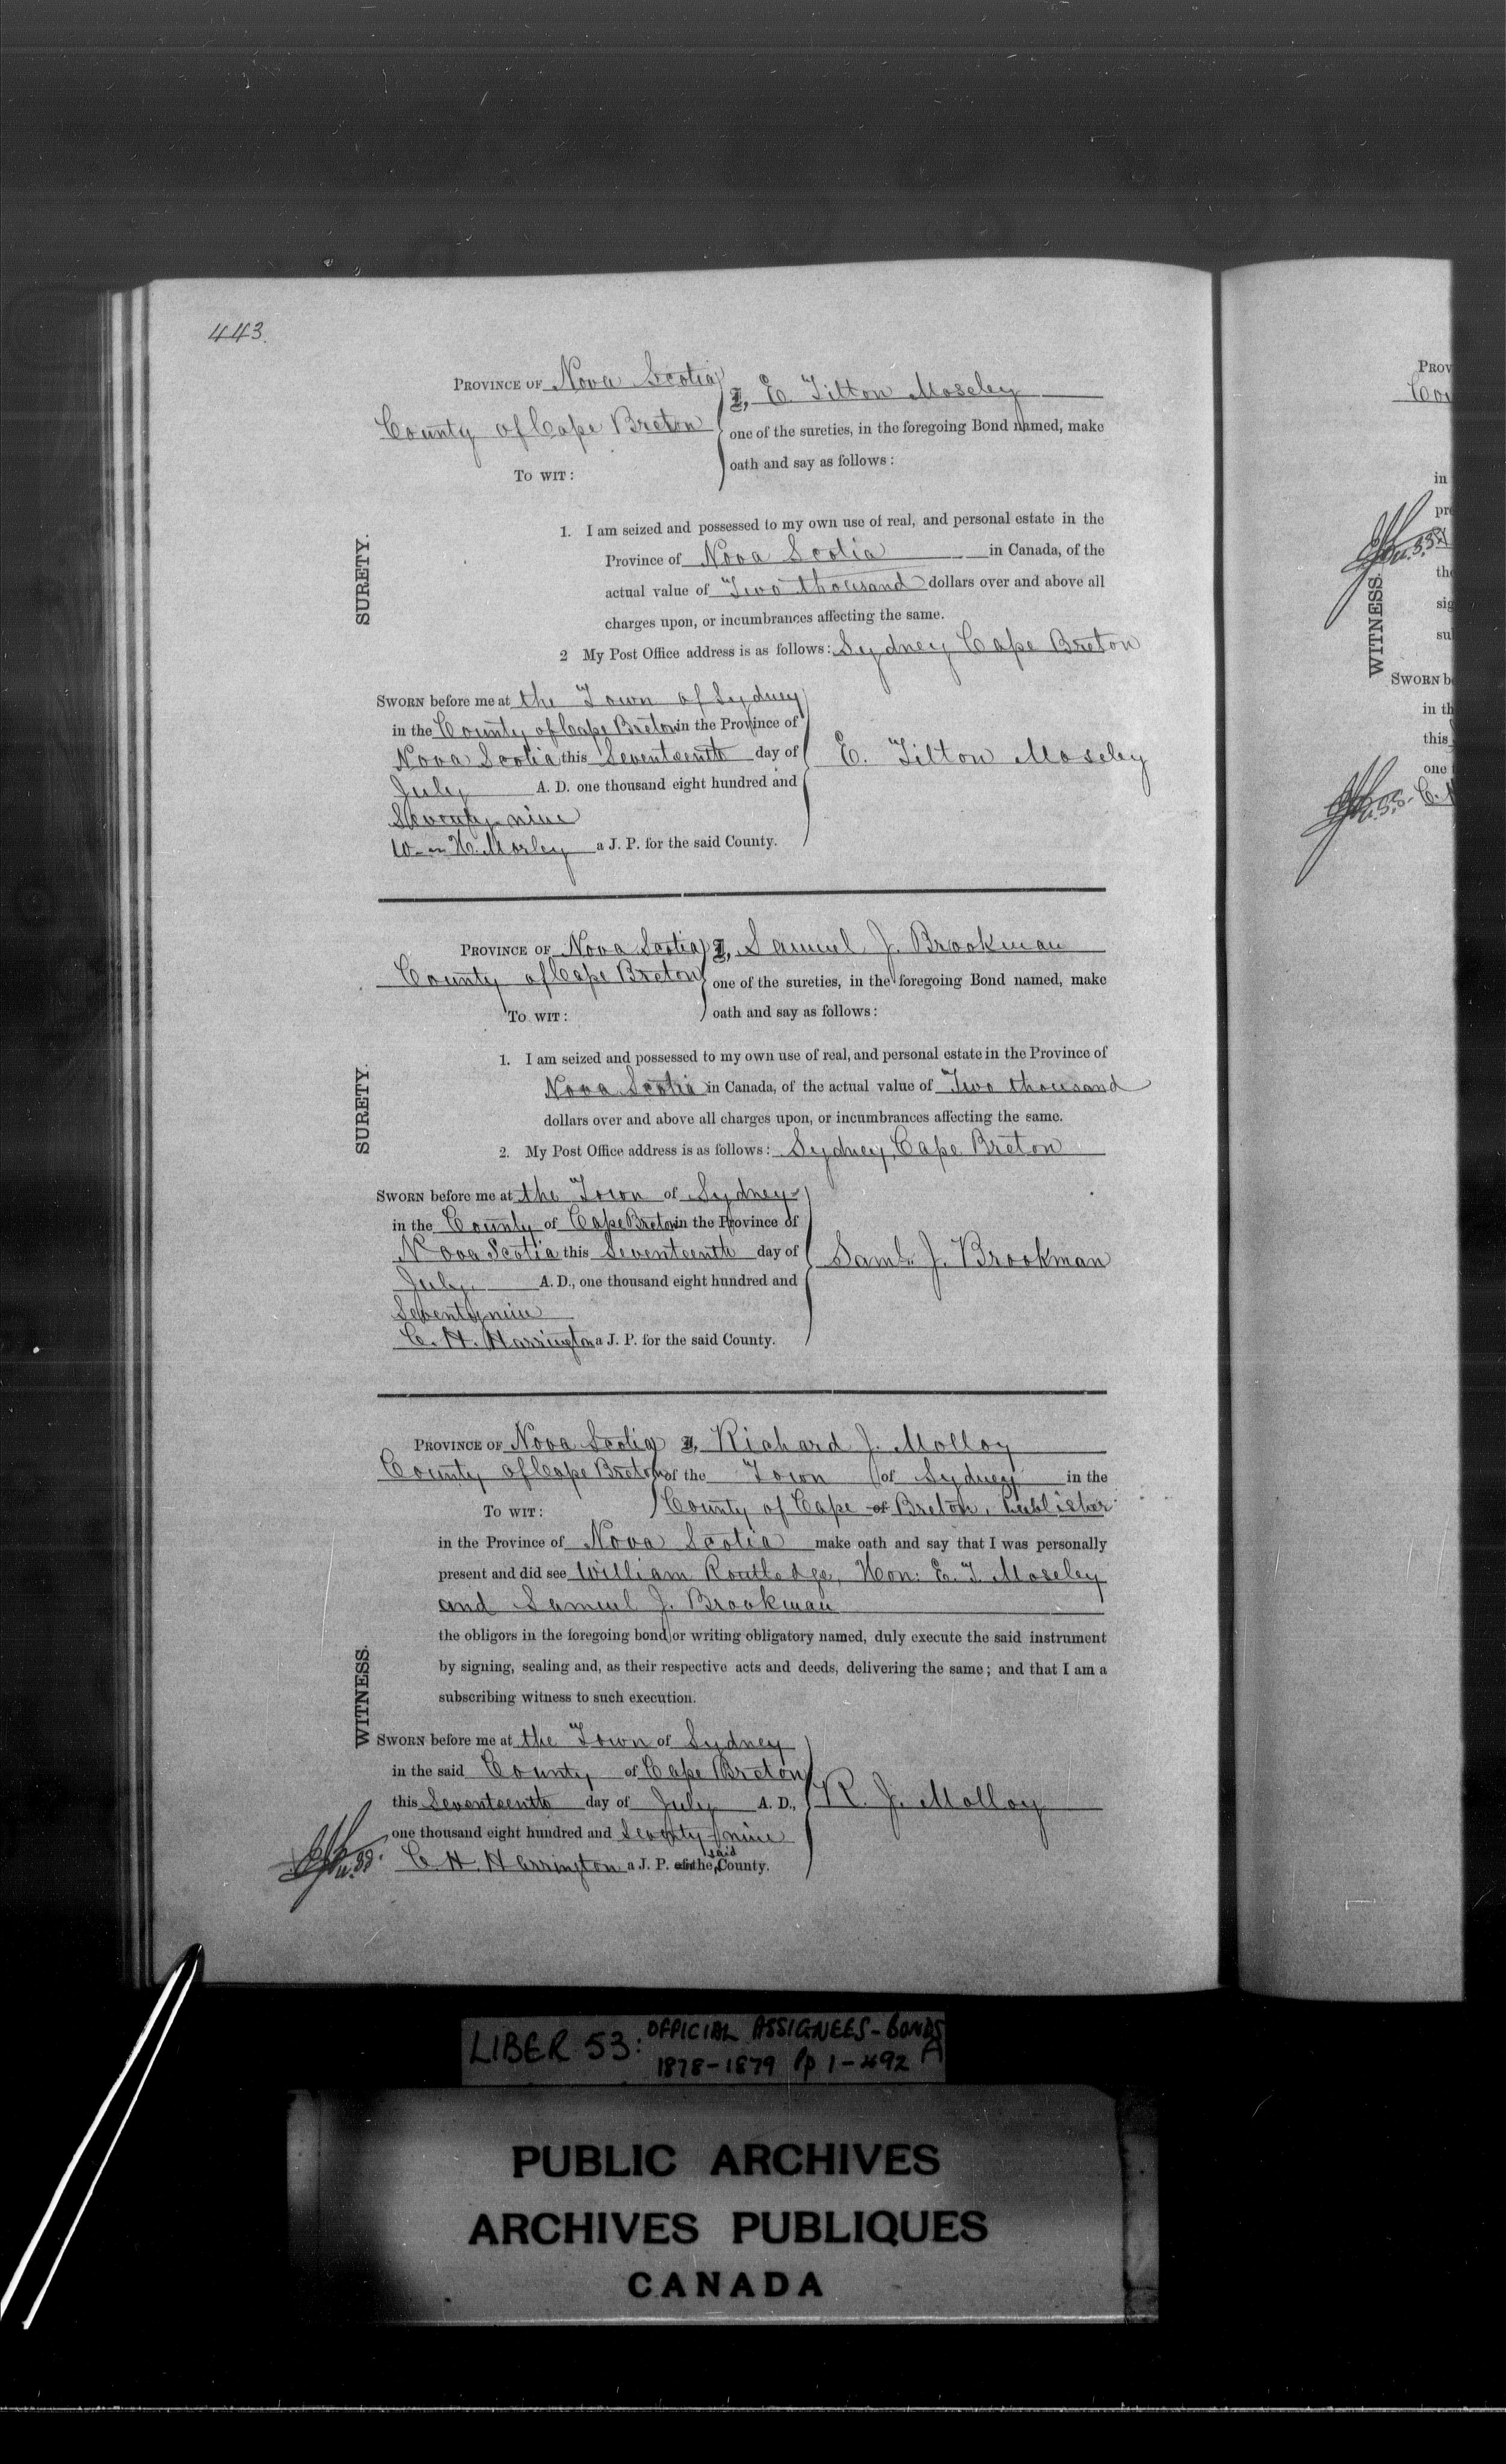 443.
PROVINCE OF Nova Scotia
County of Cape Breton
TO WIT:
I, E. Tilton Moseley
one of the sureties, in the foregoing Bond named, make
oath and say as follows:
SURETY.
1. I am seized and possessed to my own use of real, and personal estate in the
Province of Nova Scotia in Canada, of the
actual value of Two thousand dollars over and above all
charges upon, or incumbrances affecting the same.
2 My Post Office address is as follows: Sydney Cape Breton
SWORN before me at the Town of Sydney
in the County of Cape Breton in the Province of
Nova Scotia this Seventeenth day of
July A. D. one thousand eight hundred and
Seventy-nine
Wm H. Morley a J. P. for the said County.
E. Tilton Moseley
PROVINCE OF Nova Scotia
County of Cape Breton
TO WIT:
I, Samuel J. Brookman
one of the sureties, in the foregoing Bond named, make
oath and say as follows:
SURETY.
1. I am seized and possessed to my own use of real, and personal estate in the Province of
Nova Scotia in Canada, of the actual value of Two thousand
dollars over and above all charges upon, or incumbrances affecting the same.
2. My Post Office address is as follows: Sydney, Cape Breton
SWORN before me at the Town of Sydney
in the County of Cape Breton in the Province of
Nova Scotia this Seventeenth day of
July A. D., one thousand eight hundred and
Seventy nine
C. H. Harrington a J. P. for the said County.
Saml. J. Brookman
PROVINCE OF Nova Scotia
County of Cape Breton
TO WIT:
I, Richard J. Molloy
of the Town of Sydney in the
County of Cape of Breton, Publisher
in the Province of Nova Scotia make oath and say that I was personally
present and did see William Routledge, Hon: E. T. Moseley
and Samuel J. Brookman
the obligors in the foregoing bond or writing obligatory named, duly execute the said instrument
by signing, sealing and, as their respective acts and deeds, delivering the same; and that I am a
subscribing witness to such execution.
WITNESS.
SWORN before me at the Town of Sydney
in the said County of Cape Breton
this Seventeenth day of July A. D.,
one thousand eight hundred and Seventy-nine
C. H. Harrington a J. P. the said County.
R. J. Molloy
PROV
Cou
in
pr
the
sig
su
WITNESS.
SWORN b
in th
this
one
LIBER 53: OFFICIAL ASSIGNEES-BONDS
1878-1879 Pp 1-492 A
PUBLIC ARCHIVES
ARCHIVES PUBLIQUES
CANADA